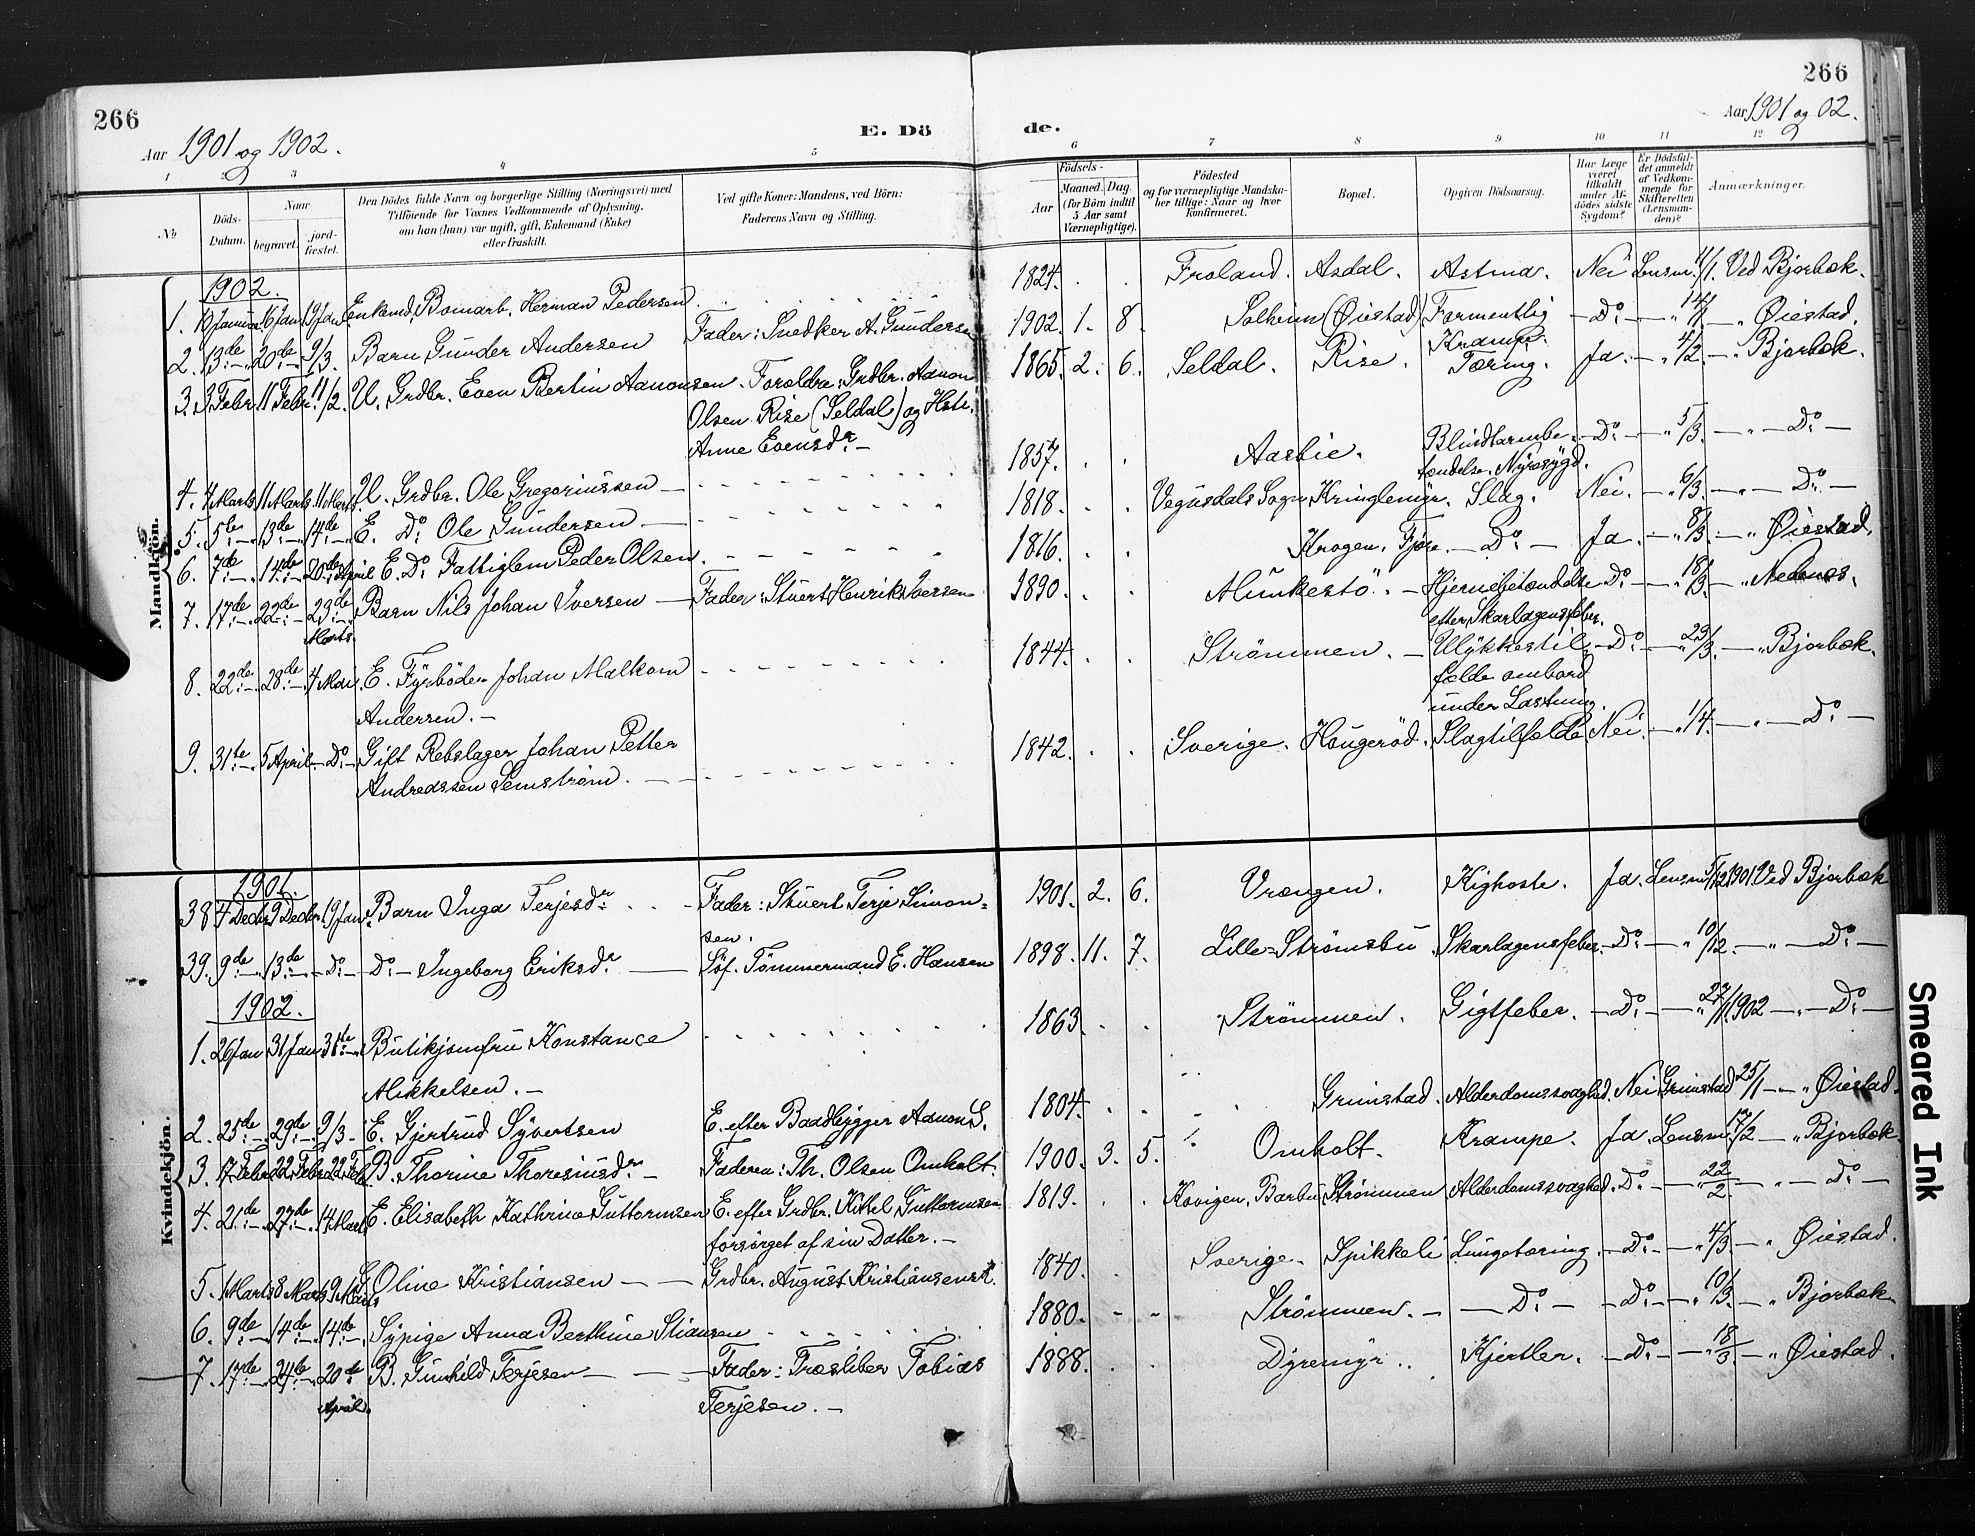 266
Aar 1901 og 1902.
E. Dö
de.
266
Aar 1901 og 02.
1 2 3 4 5 6 7 8 9 10 11 12
No
Döds-
Datum.
Naar
begravet.
jord-
fæstet.
Den Dödes fulde Navn og borgerlige Stilling (Næringsvei) med
Tilföiende for Voxnes Vedkommende af Oplysning,
om han (hun) var ugift, gift, Enkemand (Enke)
eller fraskilt.
Ved gifte Koner: Mandens, ved Börn:
Faderens Navn og Stilling.
Födsels-
Aar
Maaned. Dag.
(for Börn indtil
5 Aar samt
Værnepligtige).
Födested
og for værnepligtige Mandska-
ber tillige: Naar og hvor
konfirmeret.
Bopæl.
Opgiven Dödsaarsag.
Har Læge
været
tilkaldt
under Af-
dödes sidste
Sygdom?
Er Dödsfal-
det anmeldt
af Vedkom-
mende for
Skifteretten
(Lensman-
den)?
Anmærkninger.
Mandkjön.
1902.
1. 10 Januar. 16 Jan. 19 Jan. Enkemd. Bomarb. Herman Pedersen. 1824. Froland. Asdal. Astma. Nei Lensm. 11/1. Ved Bjorbæk.
2. 13de 20de 9/3. Barn Gunder Andersen Fader: Snedker A. Gundersen 1902. 1. 8. Solheim (Øiestad) Formentlig Krampe. Do 14/1 Øiestad.
3. 3 Febr. 11 Febr. 11/2. U. Grdbr. Even Bertin Aanonsen. Forældre: Grdbr. Aanon 1865. 2. 6. Seldal. Rise. Tæring. Ja. 4/2. Bjorbæk.
Olsen Rise (Seldal) og Hstr.
Anne Evensdr.
4. 4 Marts 11 Marts 11 Marts U. Grdbr. Ole Gregoriussen 1857. Aasbie. Blindtarmbe- Do 5/3. Do
tændelse. Nyresygd.
5. 5te 13de 14de E. Do Ole Gundersen. 1818. Vegusdals Sogn Kringlemyr. Slag. Nei. 6/3. Do
6. 7de 14de 20de April E. Do. Fattiglem Peder Olsen. 1816. Krogen. Fjære. Do Ja. 8/3. Øiestad.
7. 17de 22de 23de Marts. Barn Nils Johan Iversen Fader: Stuert Henrik Iversen 1890. Munkestö. Hjernebetændelse Do 18/3. Nedenes.
efter Skarlagensfeber.
8. 22de 28de 4 Mai. E. Fyrböder Johan Malkom 1844. Strømmen. Ulykkestil- Do 23/3. Bjorbæk.
Andersen. fælde ombord
under Lastning.
9. 31te 5 April Do Gift Rebslager Johan Petter 1842. Sverige. Haugeröd. Slagtilfælde Nei. 1/4. Do
Andreassen Semström.
Kvindekjön.
1901.
38 4 Decbr. 9 Decbr. 19 Jan. Barn Inga Terjesdr. Fader: Stuert Terje Simon= 1901. 2. 6. Vrængen. Kighoste. Ja. Lensm. 5/12 1901 Ved Bjorbæk
sen.
39. 9de 13de Do Do Ingeborg Eriksdr. Søf. Tömmermand E. Hansen 1898. 11. 7. Lille=Strömsbu Skarlagensfeber Do 10/12. Do
1902.
1. 26 Jan 31 Jan 31te Butikjomfru Konstance 1863. Strømmen. Gigtfeber. Do 27/1 1902 Do
Mikkelsen.
2. 25de 29de 9/3 E. Gjertrud Syvertsen E. efter Baadbygger Aanon S. 1804. Grimstad. Alderdomssvaghed. Nei Grimstad 25/1 Øiestad.
3. 17 Febr. 22 Febr. 22 Feb. B. Thorine Thoresiusdr. Faderen: Th. Olsen Omholt. 1900. 3. 5. Omholt. Krampe. Ja. Lensm. 17/2 Bjorbæk.
4. 21de 27de 14 Marts E. Elisabeth Kathrine Guttormsen E. efter Grdbr. Kittel Guttormsen 1819. Kovigen, Barbu Strømmen Alderdomssvaghed. Do 22/2. Do
forsörget af sin Datter.
5. 1 Marts 8 Marts 9 Marts Oline Kristiansen Grdbr. August Kristiansens 1840. Sverige. Spikkeli Lungetæring. Do 4/3. Øiestad.
6. 9de 14de 14de Sypige Anna Berthine Stiansen 1880. Strømmen. Do Do 10/3. Bjorbæk.
7. 17de 24de 20de April. B. Gunhild Terjesen Fader: Træsliber Tobias 1888. Dyremyr. Kjertler. Do 18/3. Øiestad.
Terjesen.
Smeared Ink